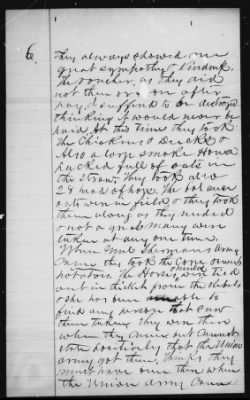 6
They always showed me
great sympathy & kindness
the voucher, as they did
not then or soon after
pay I suffered to be destroyed
thinking it would never be
paid At this time they took
the Chickens & Ducks &
Also a large smoke House
packed full of oats in
the Straw. They took also
28 head of hogs. The balance
oats were in field & they took
them along as they needed
& not a great many were
taken at any one time.
When Gnl Shermans Army
Came they took the Corn
potatoes The Horses, were tied
out in thicket from the Rebels
& she has been unable to
find any person that saw
them taken, they were there
when they Came but Cannot
state positively that the Union
army got them, Thinks they
must have done then when
the Union Army Came